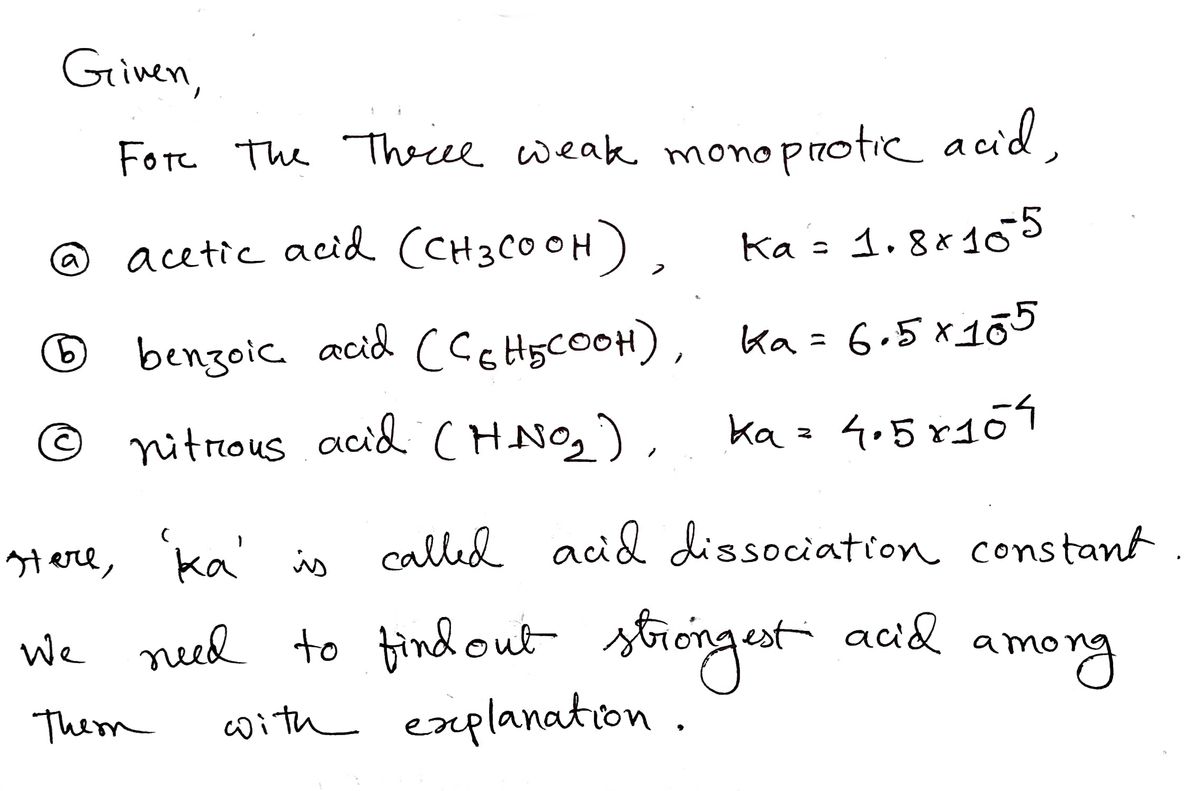 Given,
For The Three weak monoprotic acid,
ⓐ acetic acid (CH3COOH), Ka = 1.8×10⁻⁵
ⓑ benzoic acid (C6H5COOH), Ka = 6.5×10⁻⁵
ⓒ nitrous acid (HNO2), Ka = 4.5×10⁻⁴
Here, 'ka' is called acid dissociation constant.
We need to find out strongest acid among
Them with explanation.